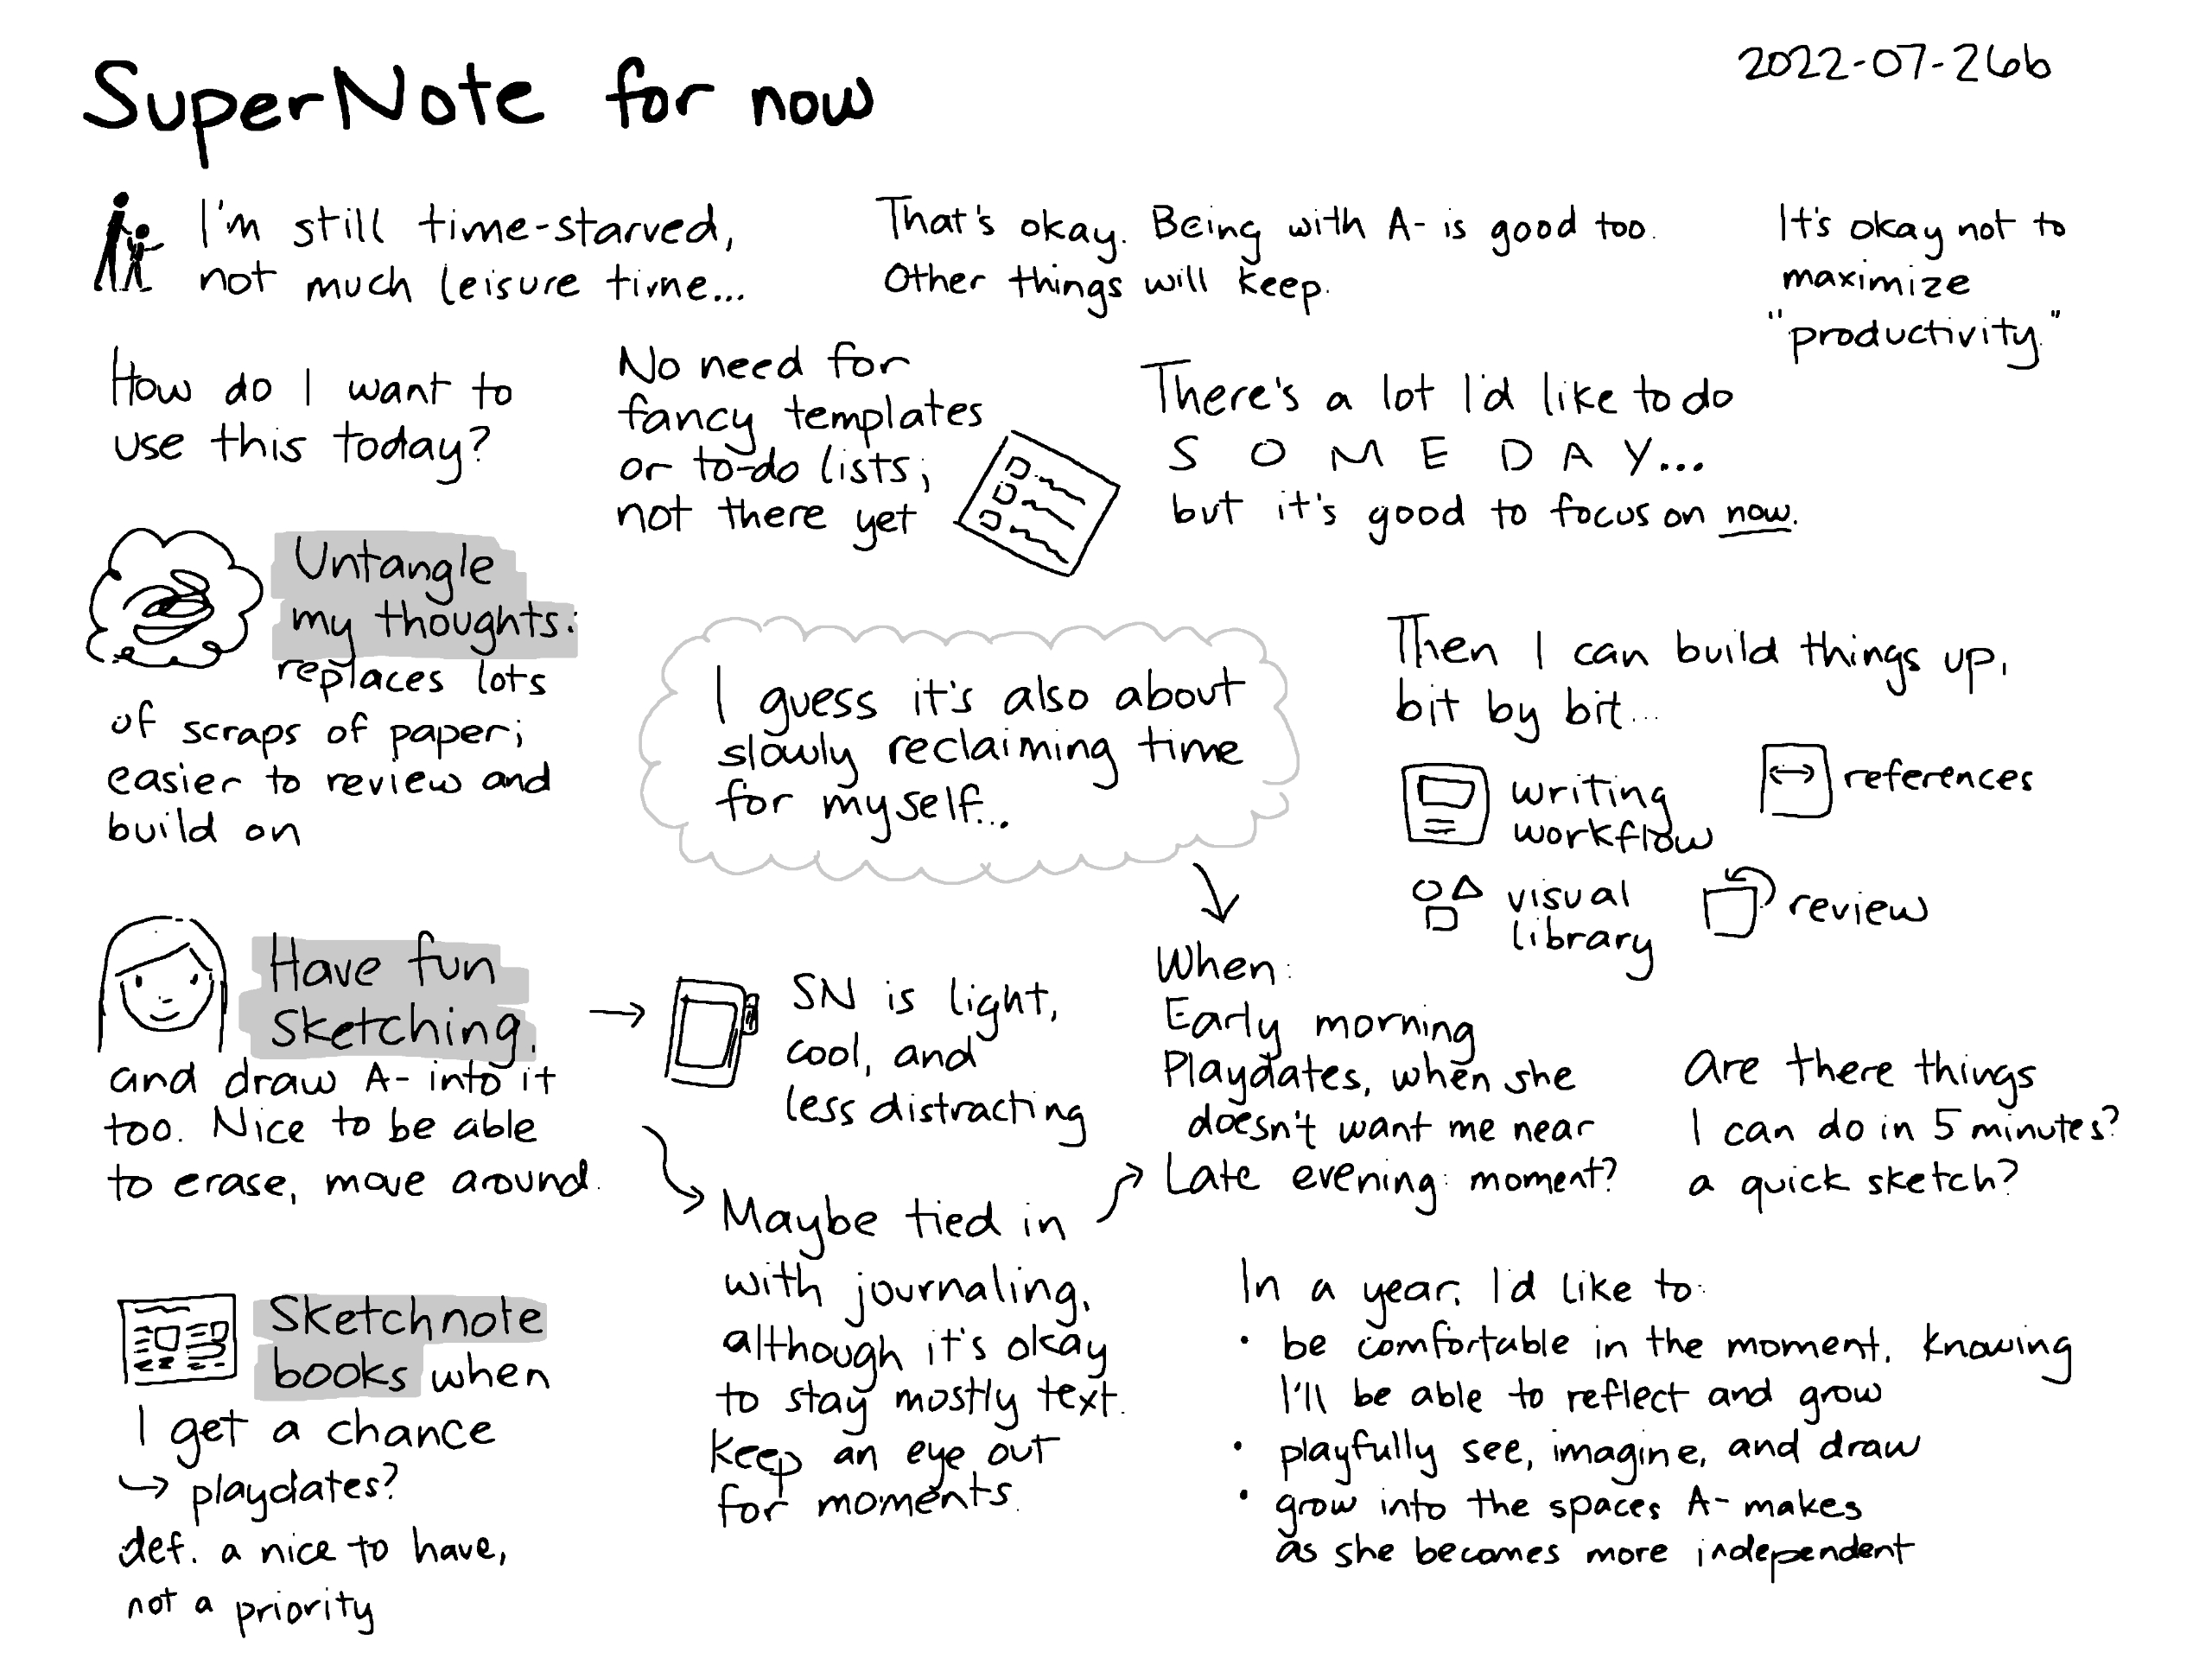 SuperNote for now
2022-07-26b
I'm still time-starved,
not much leisure time...
That's okay. Being with A- is good too.
Other things will keep.
It's okay not to
maximize
"productivity."
How do I want to
use this today?
No need for
fancy templates
or to-do lists;
not there yet
There's a lot I'd like to do
S O M E D A Y...
but it's good to focus on now.
Untangle
my thoughts:
replaces lots
of scraps of paper;
easier to review and
build on
I guess it's also about
slowly reclaiming time
for myself...
Then I can build things up,
bit by bit...
writing
workflow
references
visual
library
review
Have fun
sketching,
and draw A- into it
too. Nice to be able
to erase, move around.
SN is light,
cool, and
less distracting
When:
Early morning
Playdates, when she
doesn't want me near
Late evening: moment?
are there things
I can do in 5 minutes?
a quick sketch?
Maybe tied in
with journaling,
although it's okay
to stay mostly text.
Keep an eye out
for moments.
Sketchnote
books when
I get a chance
playdates?
def. a nice to have,
not a priority
In a year, I'd like to:
• be comfortable in the moment, knowing
I'll be able to reflect and grow
• playfully see, imagine, and draw
• grow into the spaces A- makes
as she becomes more independent